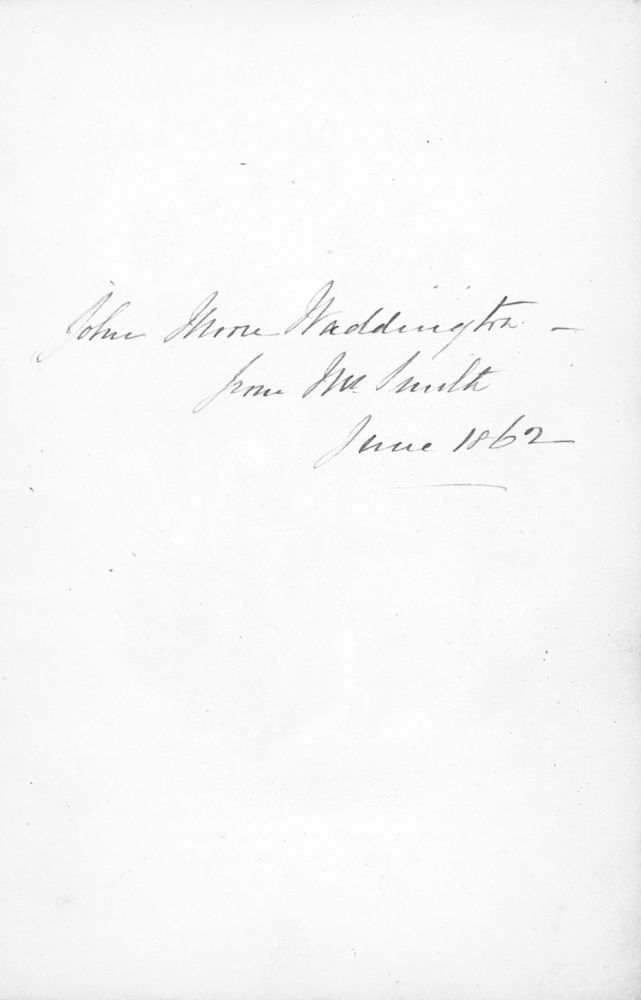 John Moore Waddington —
from Mr. Smith
June 1862